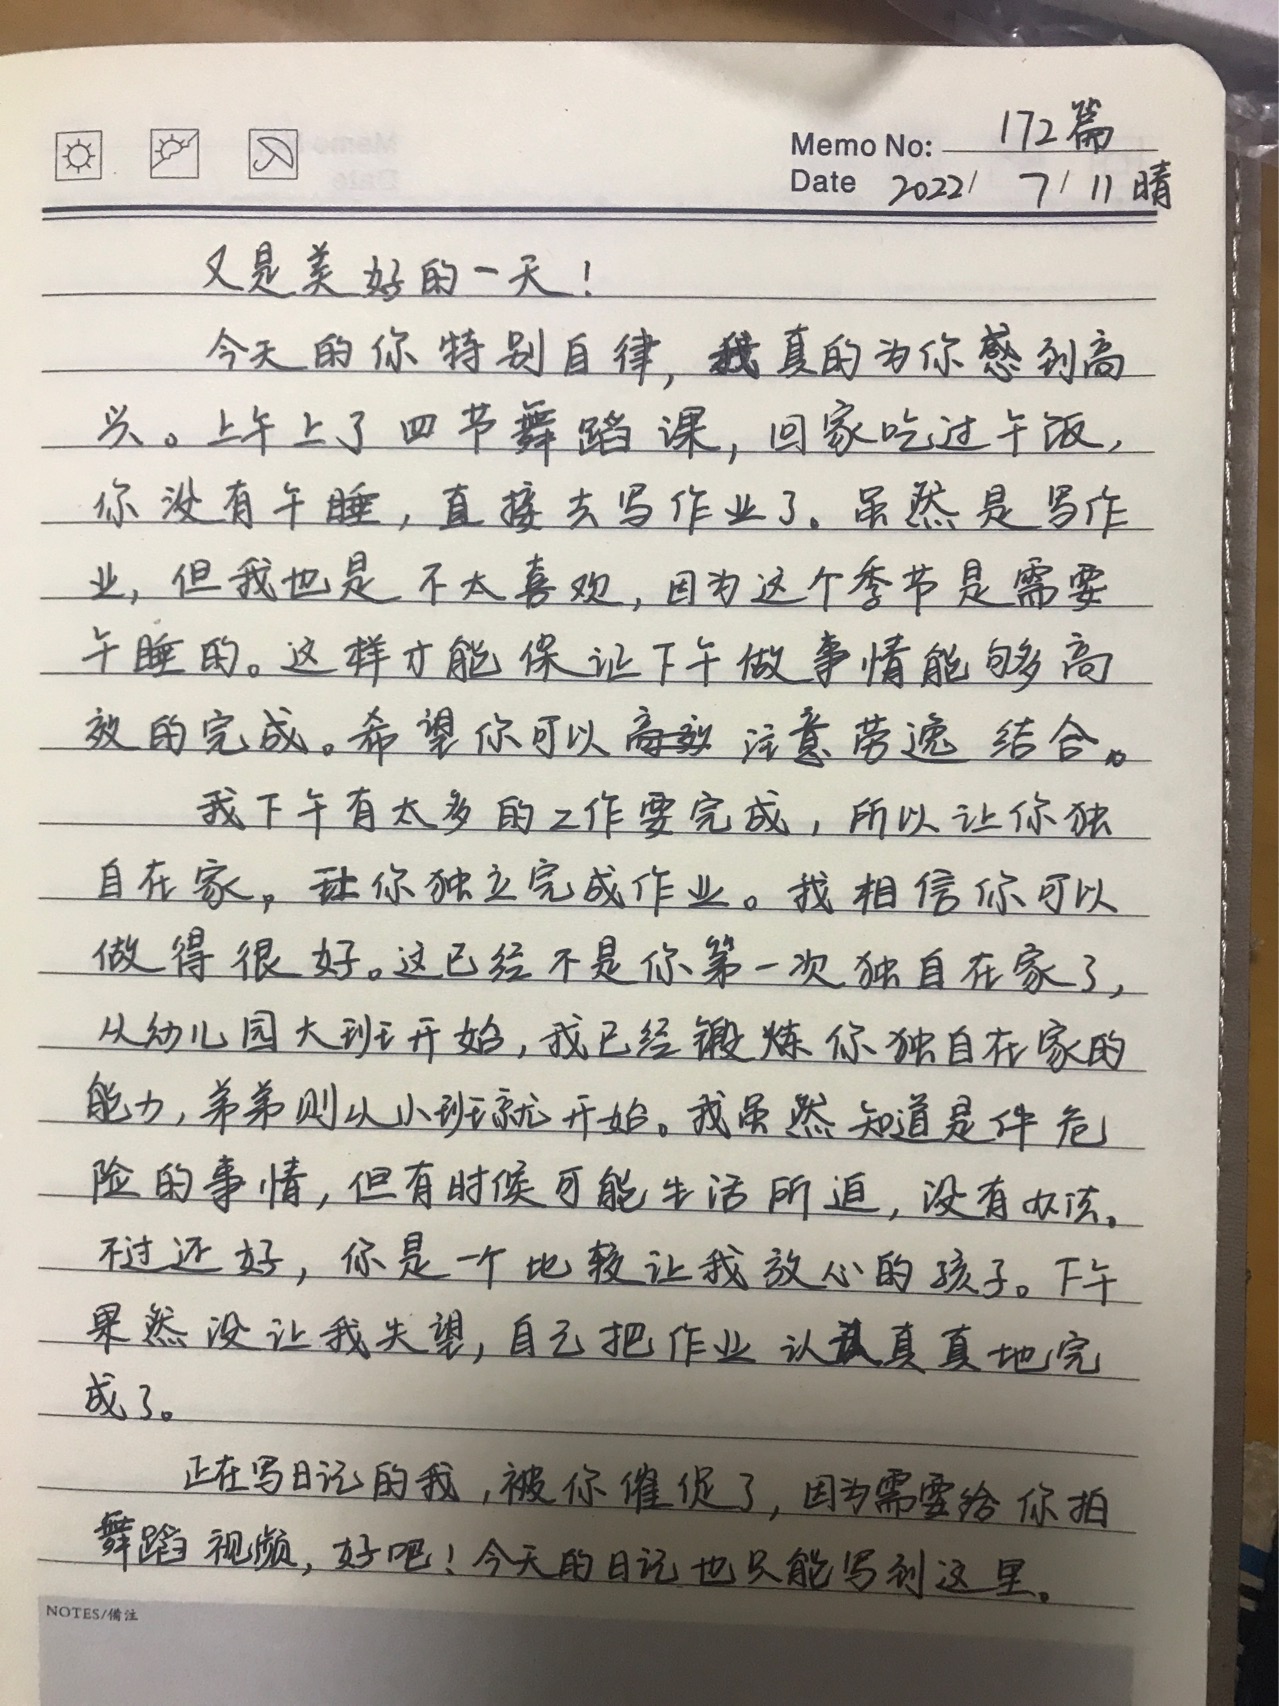 Memo No: 172篇
Date 2022/ 7/11 晴
又是美好的一天！
今天的你特别自律，我真的为你感到高
兴。上午上了四节舞蹈课，回家吃过午饭，
你没有午睡，直接去写作业了。虽然是写作
业，但我也是不太喜欢，因为这个季节是需要
午睡的。这样才能保证下午做事情能够高
效的完成。希望你可以高效注意劳逸结合。
我下午有太多的工作要完成，所以让你独
自在家，让你独立完成作业。我相信你可以
做得很好。这已经不是你第一次独自在家了，
从幼儿园大班开始，我已经锻炼你独自在家的
能力，弟弟则从小班就开始。我虽然知道是件危
险的事情，但有时候可能生活所迫，没有办法。
不过还好，你是一个比较让我放心的孩子。下午
果然没让我失望，自己把作业认认真真地完
成了。
正在写日记的我，被你催促了，因为需要给你拍
舞蹈视频，好吧！今天的日记也只能写到这里。
NOTES/備注